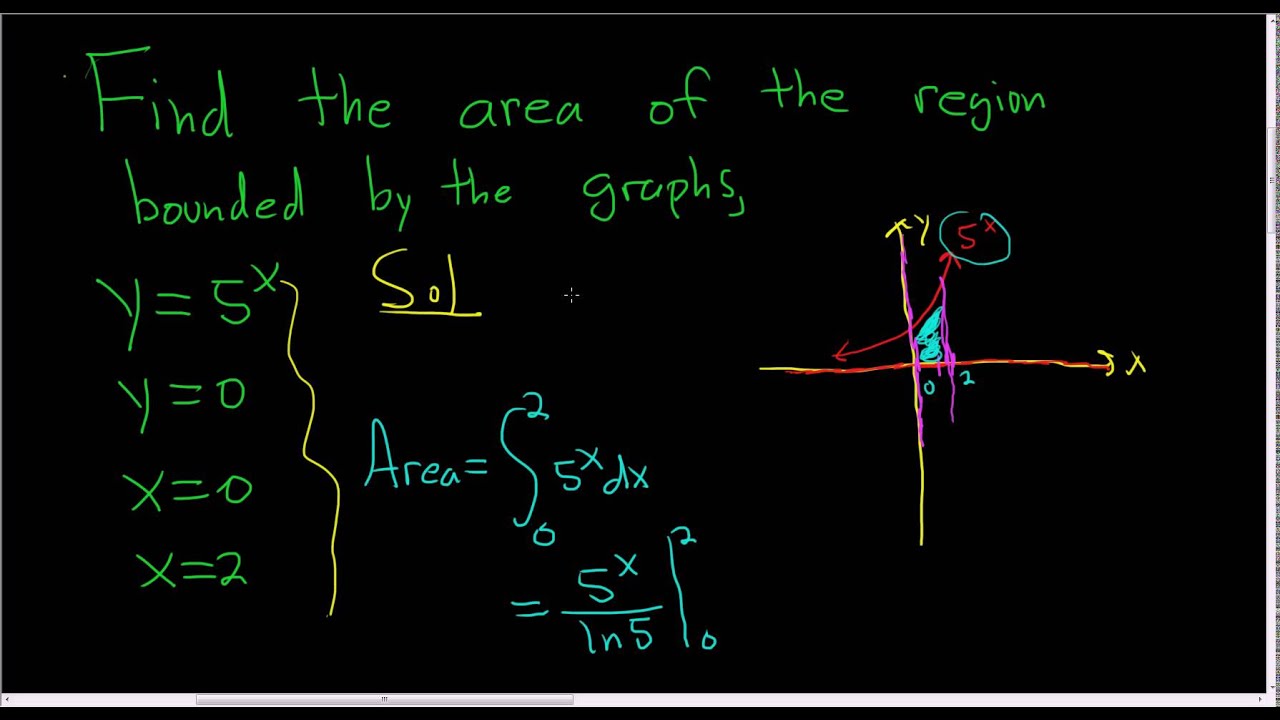 Find the area of the region
bounded by the graphs,
y = 5^x
y = 0
x = 0
x = 2
Sol
Area = ∫_0^2 5^x dx
= 5^x / ln 5 |_0^2
y
5^x
x
0 2